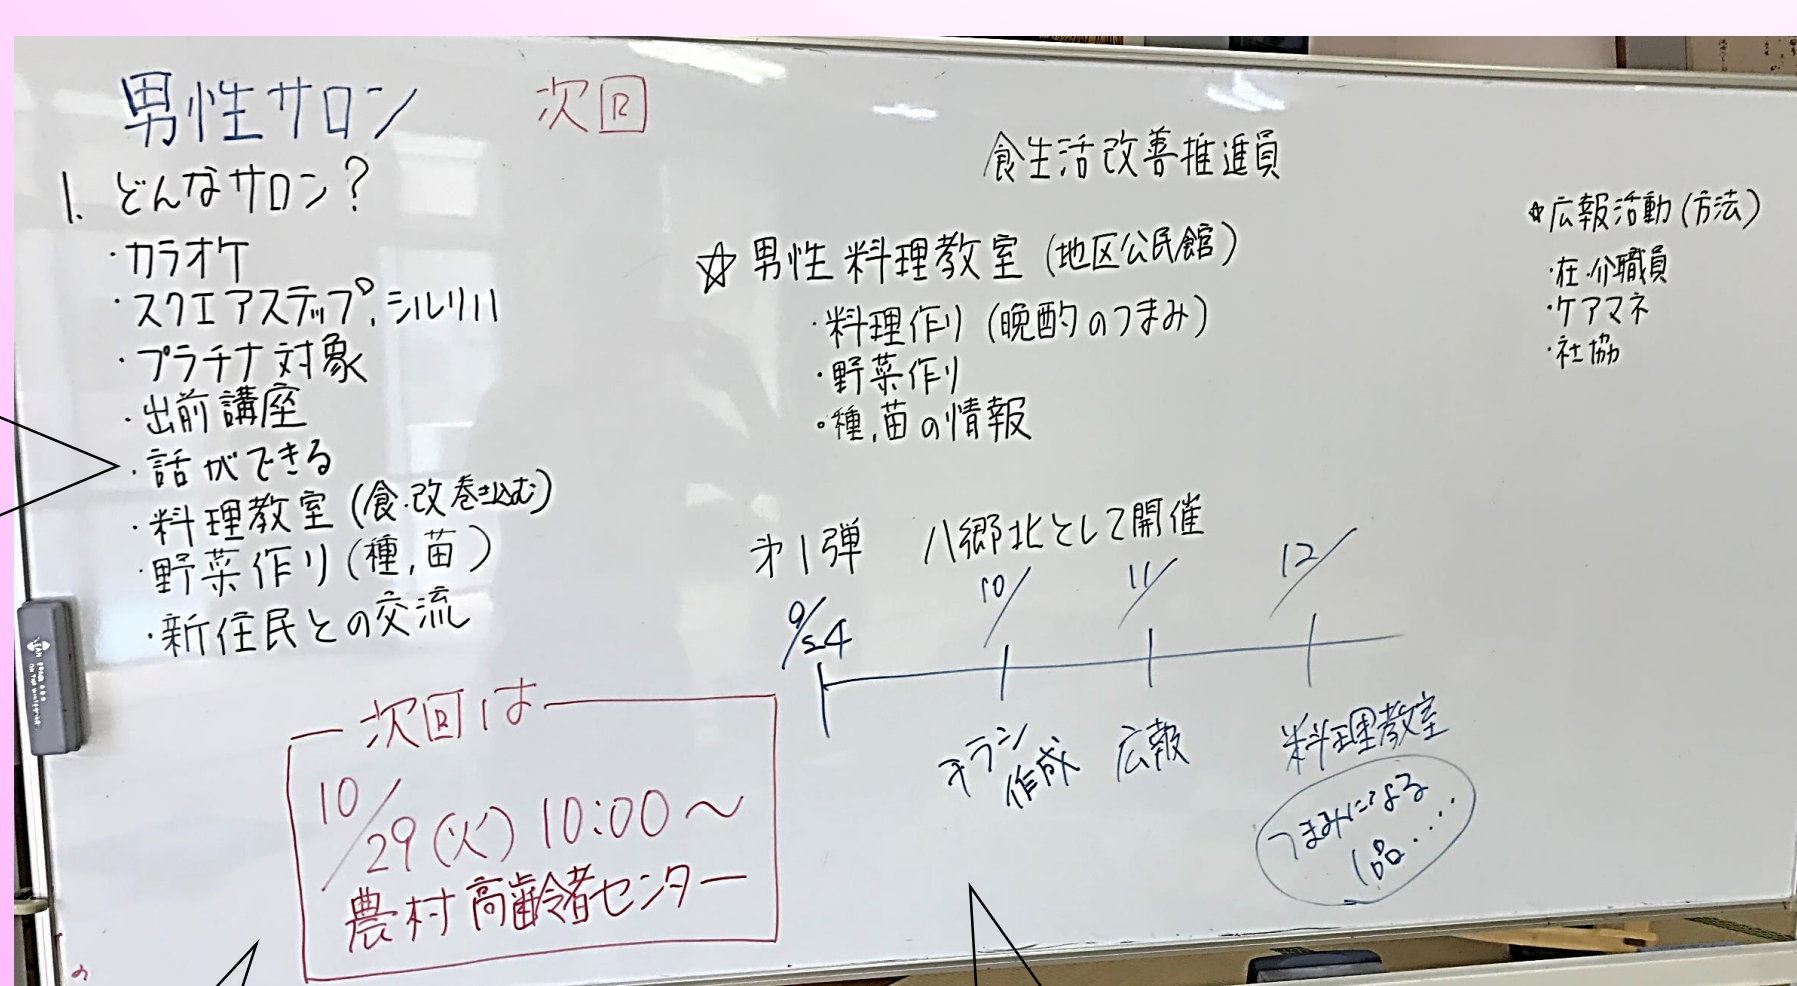 男性サロン 次回
1. どんなサロン?
・カラオケ
・スクエアステップ、シルリハ
・プラチナ対象
・出前講座
・話ができる
・料理教室(食・改巻き込む)
・野菜作り(種,苗)
・新住民との交流
次回は
10/29(火)10:00〜
農村高齢者センター
食生活改善推進員
☆男性料理教室(地区公民館)
・料理作り(晩酌のつまみ)
・野菜作り
・種,苗の情報
第1弾 八郷北として開催
9/24 10/ 11/ 12/
チラシ
作成
広報
料理教室
つまみになる
1品....
☆広報活動(方法)
・在・介職員
・ケアマネ
・社協